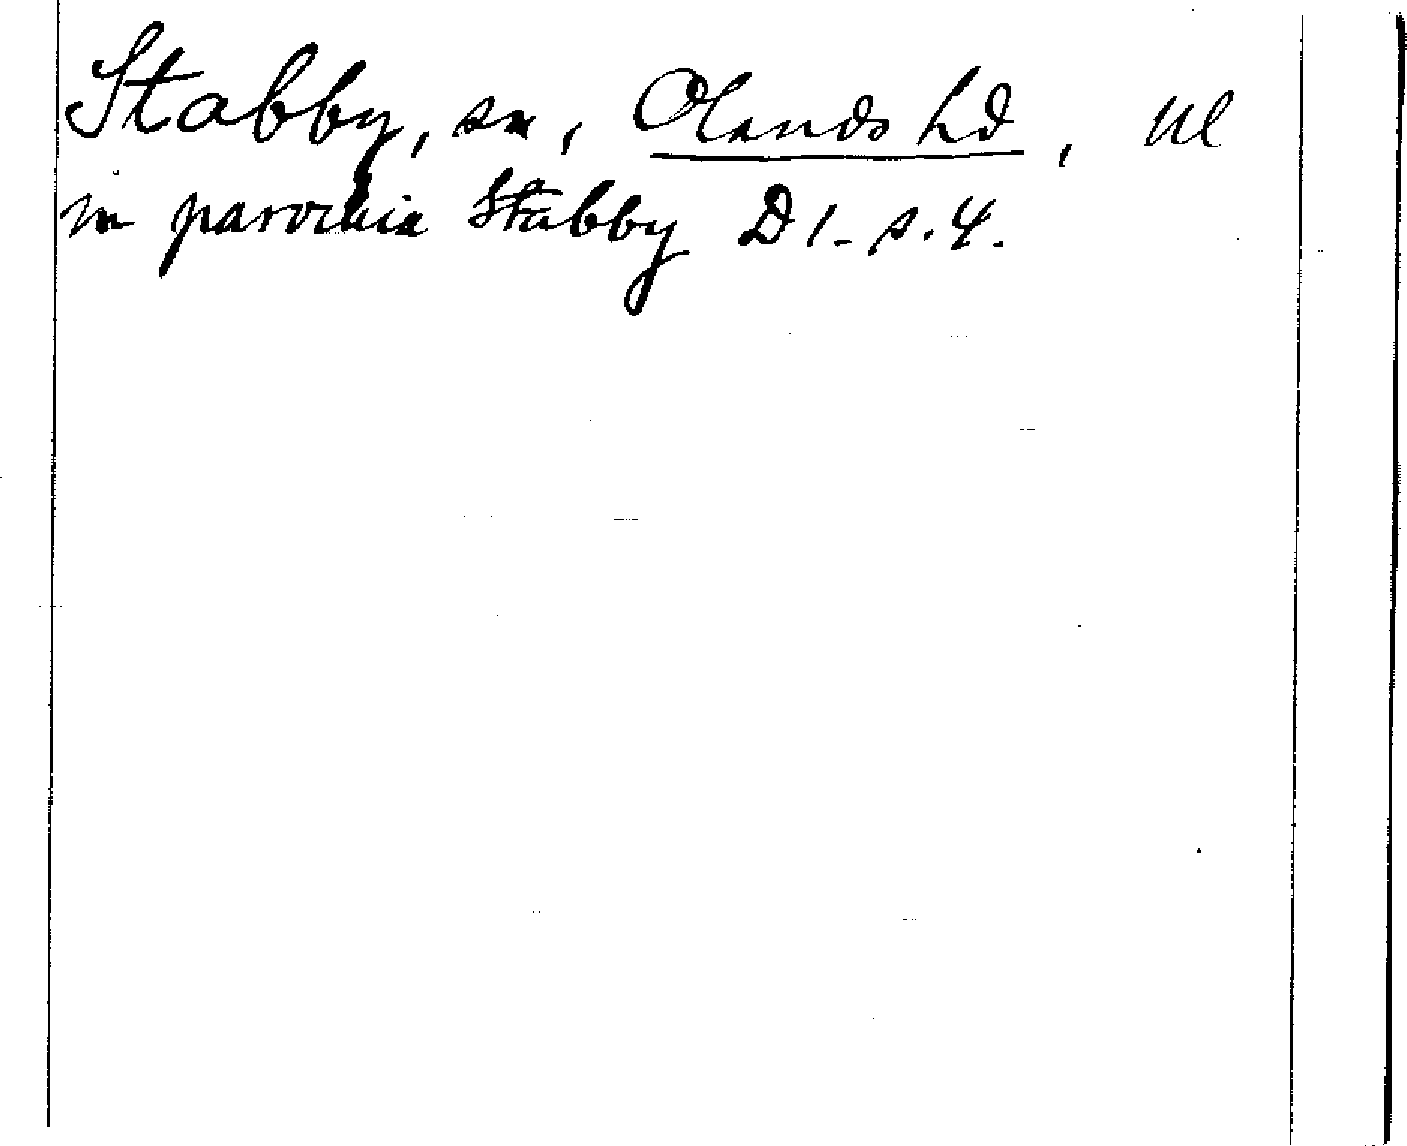 Stabby, sn, Olands hd, Ul
in parochia Stabby D 1. s. 4.